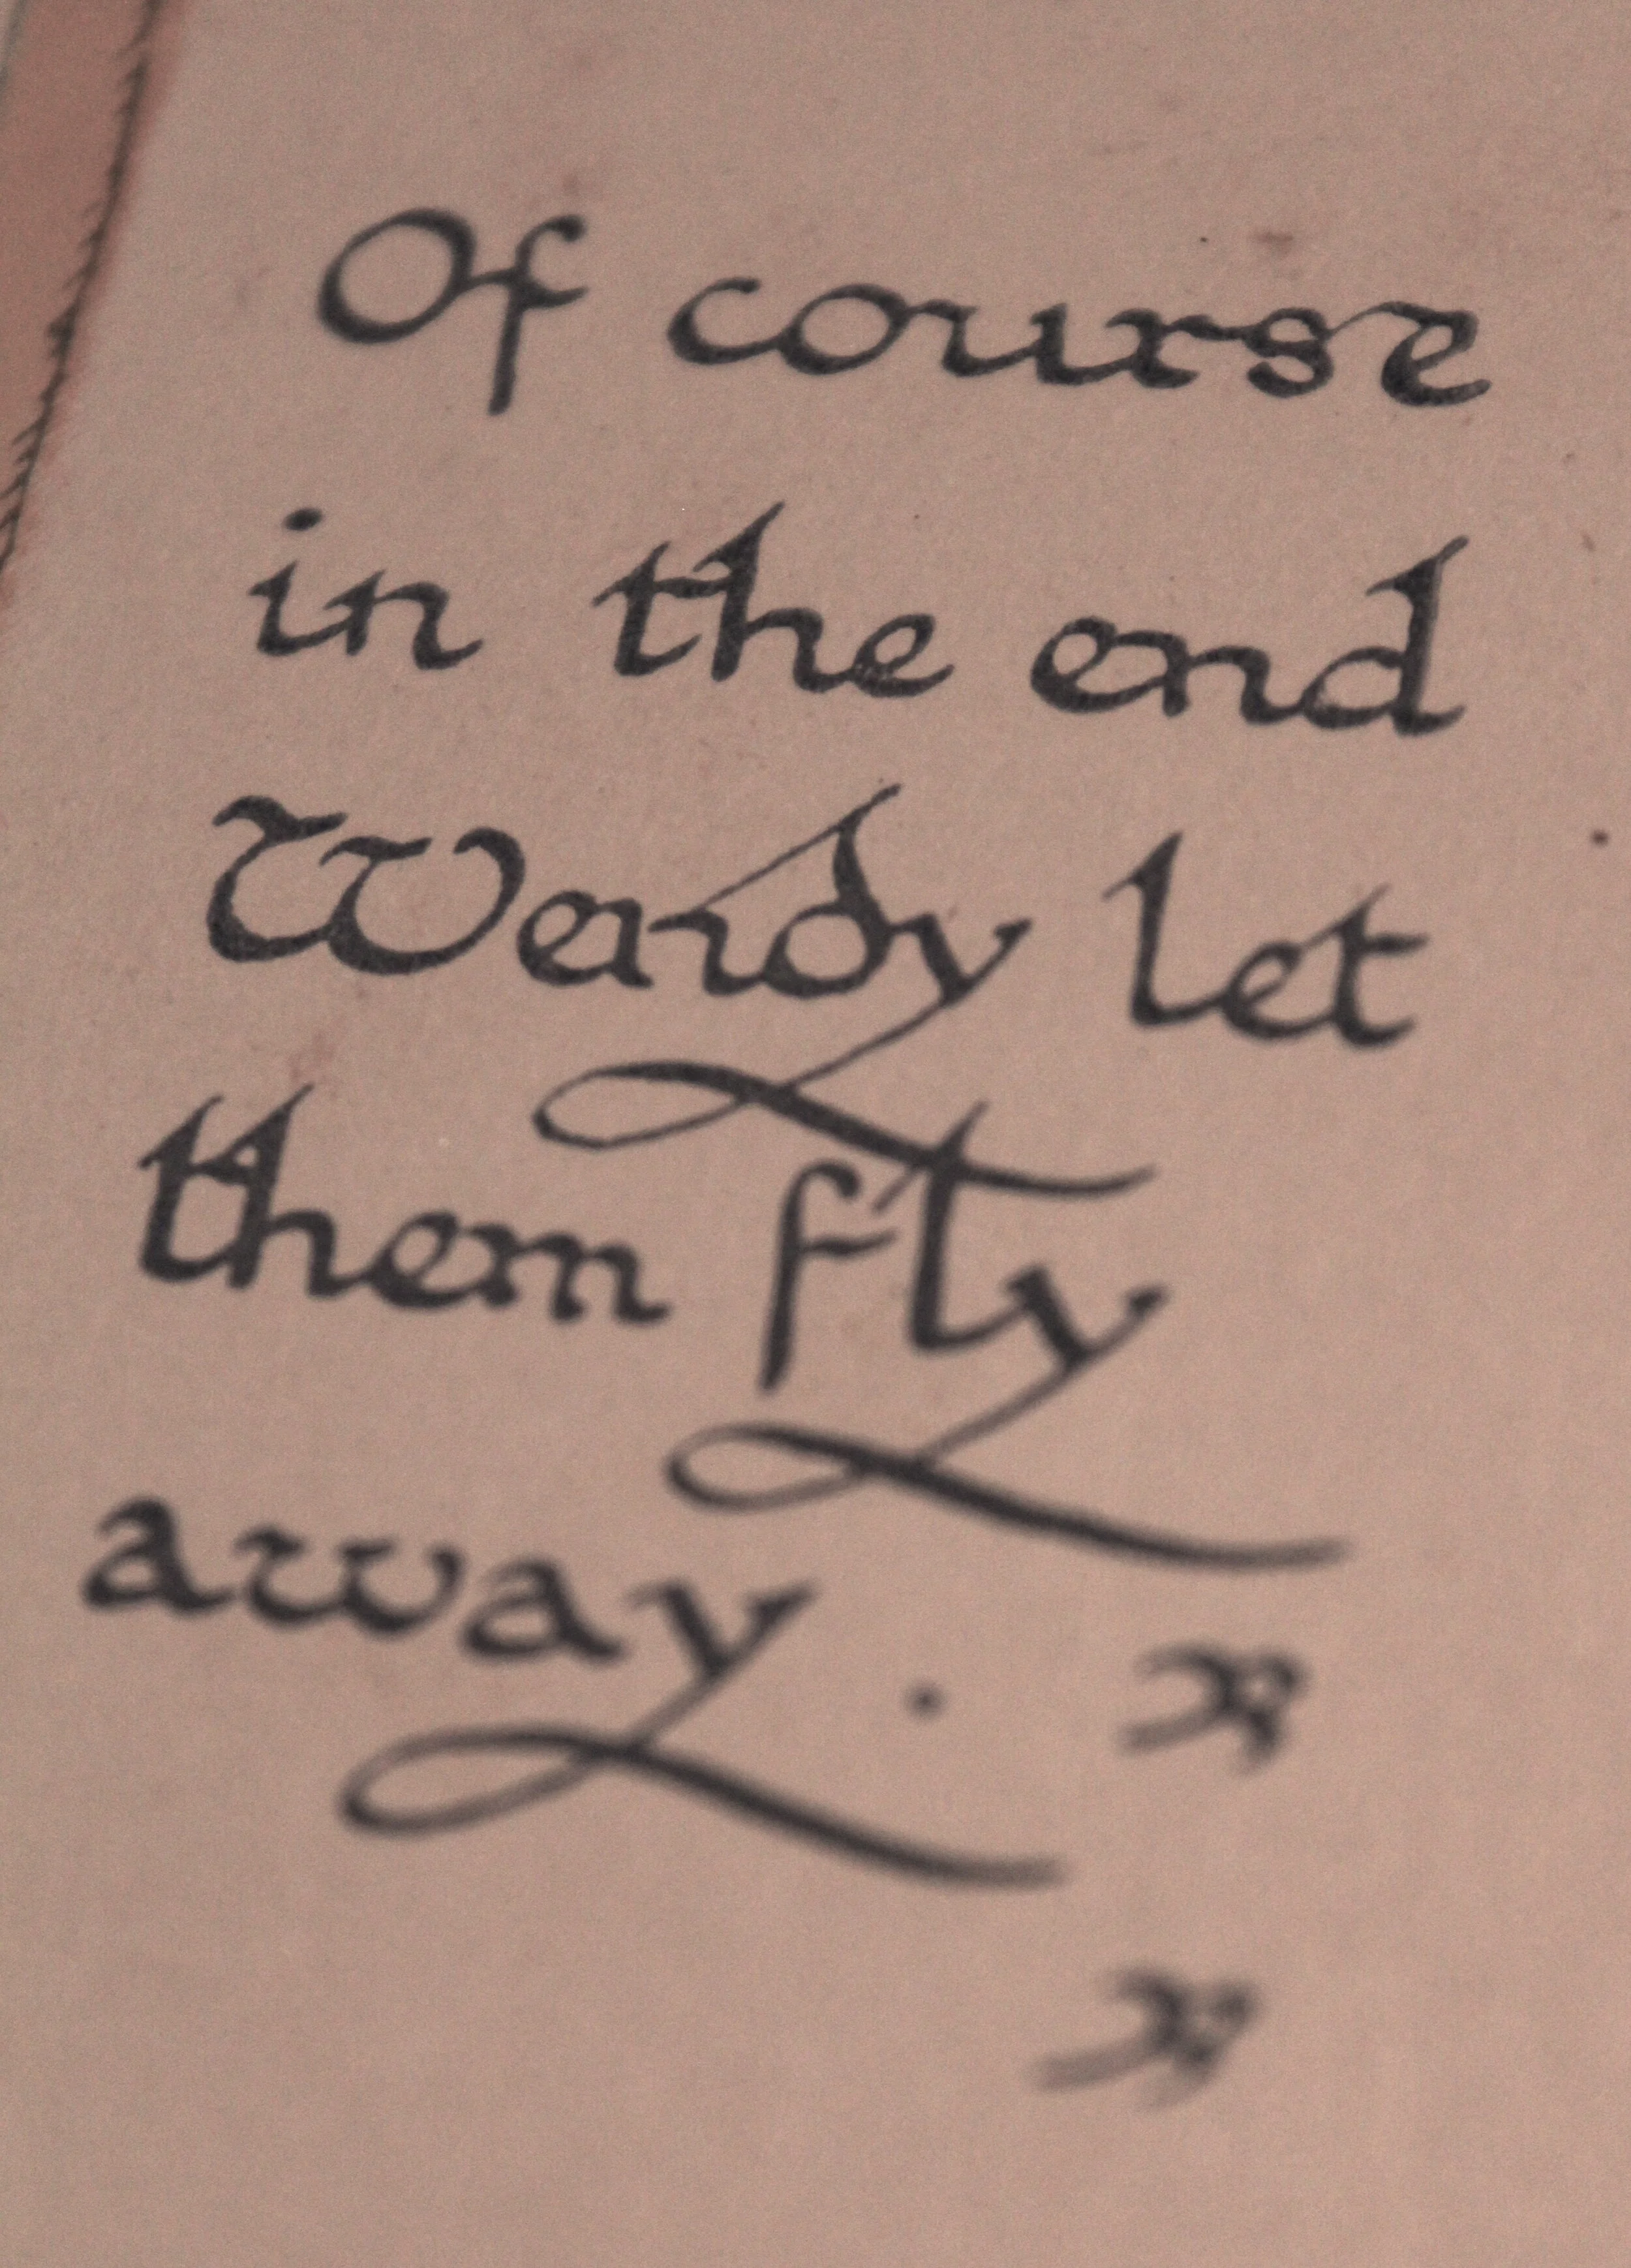 Of course
in the end
Wendy let
them fly
away.